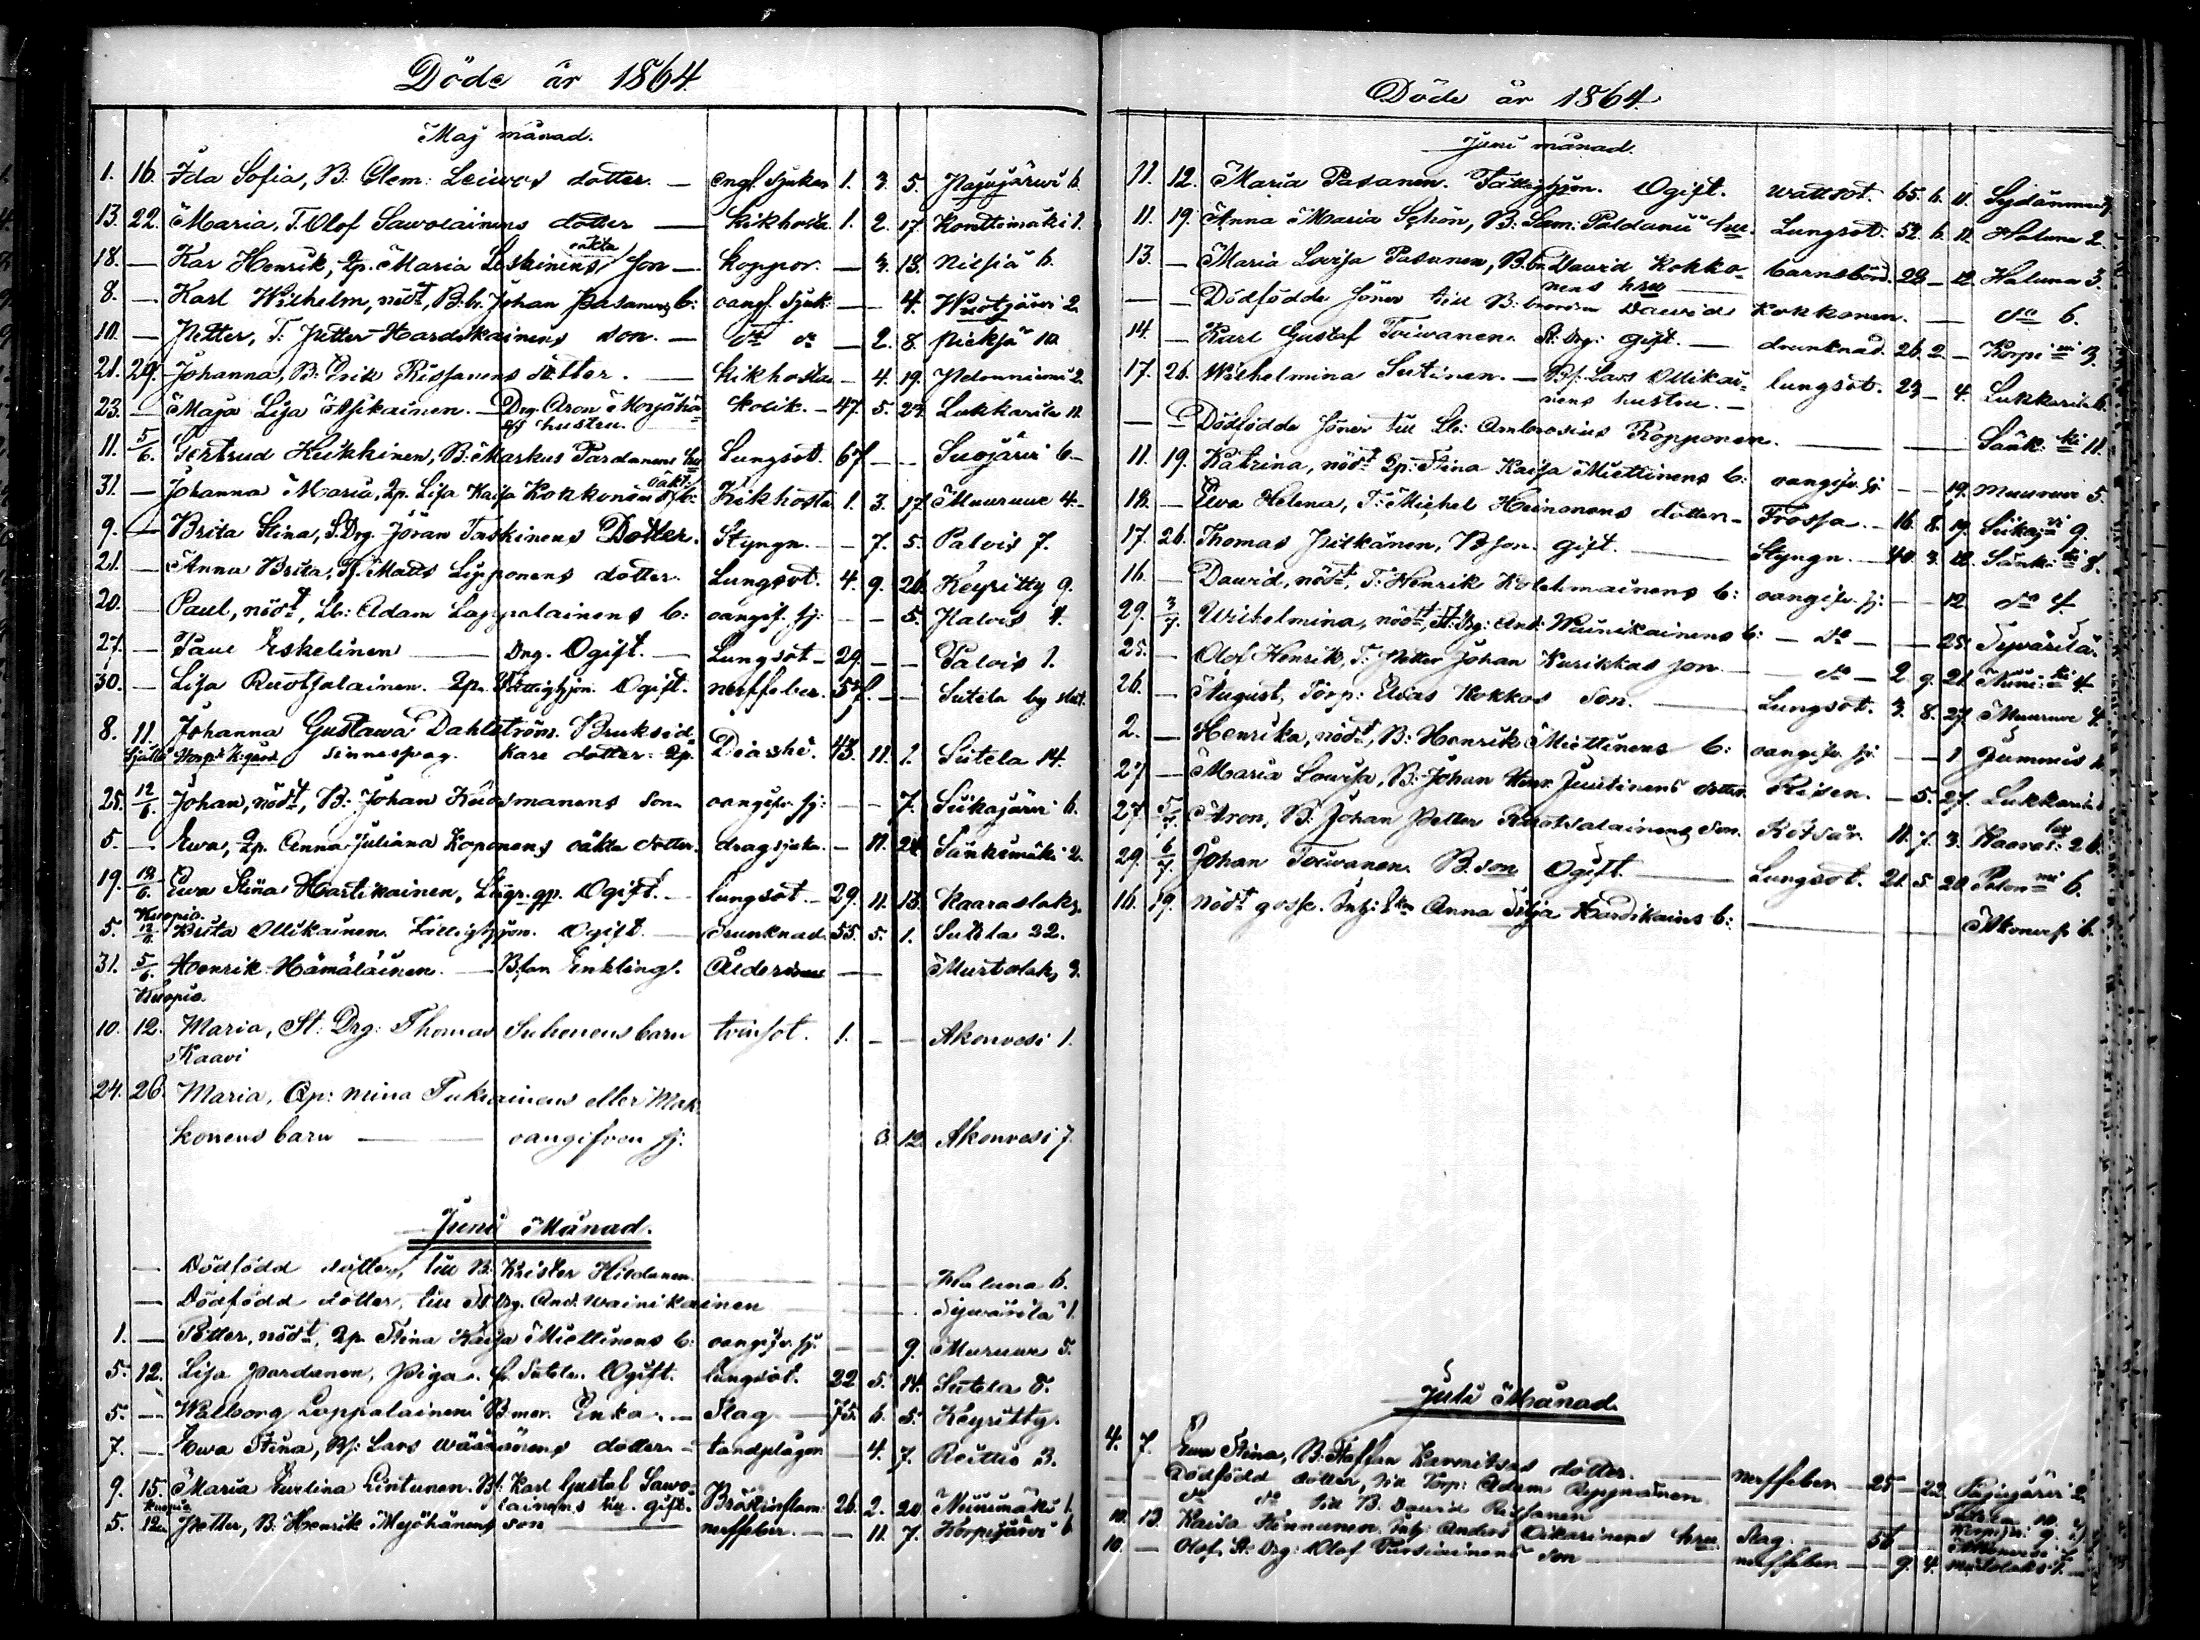 Döde år 1864.
Maj månad.
1. 16. Ida Sofia, B. Clem: Leiwos dotter. — engl. sjukan 1. 3. 5. Pajujärwi 6.
13. 22. Maria, T. Olof Sawolainens dotter — kikhosta. 1. 2. 17. Konttimäki 1.
oäkta
18. — Kar Henrik, Qp. Maria Leskinens son — koppor. — 3. 13. Nilsiä 6.
8. — Karl Wilhelm, nödt, B. br. Johan Pasanens b: oangf. sjuk: — — 4. Wuotjärwi 2.
10. — Petter, T. Petter Hardikainens son. — do do — 2. 8. Pieksä 10.
21. 29. Johanna, B. Erik Rissanens dotter. — kikhosta — 4. 19. 2.
23. — Maja Lisa Asikainen. — Drg. Aron kolik. — 47. 5. 23. Lukkarila 11.
hustru.
11. 5/6. Gertrud Kukkinen, B. Markus Tardanens hu Lungsot. 67 — — Suojärwi 6 —
oäkt.
31. — Johanna Maria, Qp. Lisa Kaisa Kokkonens b: Kikhosta 1. 3. 17. Muuruwe 4. —
9. — Brita Stina, S. Drg. Jöran Taskinens Dotter. Styngn. — — 7. 5. Palois 7.
21. — Anna Brita, Matts Lipponens dotter. Lungsot. 4. 9. 26. Keyritty 9.
20. — Paul, nödt, Lb: Adam Lappalainens b: oangif. sj: — — 5. Palois 4.
27. — Paul Eskelinen — Drg. Ogift. — Lungsot — 29. — — Palois 1.
30. — Lisa Ruotsalainen. Qp. Fattighjon. Ogift. nerffeber. 57. — — Sutela by
8. 11. Johanna Gustawa Dahlström. Bruksid-
Sinnesswag. kare dotter. Qp. Diarhé. 43. 11. 1. Sutela 14.
25. 12/6. Johan, nödt, B. Johan Kuosmanens son oangifv. sj: — — 7. Siikajärwi 6.
5. — Ewa, Qp. Anna Juliana Koponens oäkta dotter. dragsjuka. — 11. 24. Sänkimäki 2.
19. 12/6. Ewa Stina Hartikainen, Ogift. — lungsot — 29. 11. 13. Kaaraslaks.
Kuopio.
5. 12/6. Brita Ollikainen. Fattighjon. Ogift. — drunknad. 55. 5. 1. Sutela 22.
31. 5/6. Henrik Hämäläinen. — Enkling. Ålderdom — — Murtolaks 3.
Kuopio.
10. 12. Maria, St. Drg. Thomas Suhonens barn tvinsot. 1. — — Akonvesi 1.
Kaavi
24. 26. Maria, Qp: mina eller Mak-
konens barn — oangifven sj. 3. 12. Akonvesi 7.
Juni Månad.
— Dödfödd dotter, till B. Krister Hildanen. — Haluna 6.
— Dödfödd dotter, till St. Drg. And. Wainikainen — Sywärilä 1.
1. — Petter, nödt, Qp. Stina Kaisa Miettinens b: oangifv. sj. — — 9. Muruwe 5.
5. 12. Lisa Pardanen, Piga. fr. Sutela. Ogift. lungsot. 22. 5. 14. Sutela 8.
5. — Walborg Lappalainen. B. mor. Enka. — Slag — 75. 6. 5. Keyritty.
7. — Ewa Stina, Bf: Lars Wäänänens dotter — tandplågor — 4. 7. Reittiö 3.
9. 15. Maria Ewelina Lintunen. Bf: Karl Gustaf Sawo-
Kuopio lainens hu. gift. Bröstinflam: 26. 2. 20. Niinimäki 1.
5. 12. Petter, B. Henrik son — nerffeber. — — 11. 7. Korpijärwi 6
Döde år 1864.
Juni månad.
11. 12. Maria Pasanen. Fattighjon. Ogift. wattsot. 65. 6. 11. Sydänmaa
11. 19. Anna Maria Schön, B. Sam: Paldanii hu. Lungsot. 52. 6. 11. Haluna 2.
13. — Maria Lovisa Pasanen, B. br. Dawid Kokko- barnsbörd. 28 — 12. Haluna 3.
nens hru
— — Dödfödde söner till B. broren Dawid Kokkonen. — do 6.
14. — Karl Gustaf Toiwanen. St. Drg: gift. — drunknad. 26. 2. — Korpi 3.
17. 26. Wilhelmina Sutinen. — Bf: Lars Ollikai- lungsot. 23 — 4. Lukkarila 6.
nens hustru. —
— — Dödfödde söner till Lb: Ambrosius Kopponen. — Sänk: ki 11.
11. 19. Katrina, nödt Qp: Stina Kaisa Miettinens b: oangifv. sj. — — 19. Muuruwe 5.
18. — Ewa Helena, T: Michel Heinonens dotter — Frossa. — 16. 8. 19. Siikaj: 9.
17. 26. Thomas Pitkänen, B. son. gift. — Styngn. — 40. 3. 12. Sänk: ki 8.
16. — Dawid, nödt, T: Henrik Kolehmainens b: oangifv. sj: — — 12. do 4.
29. 3/7. Wilhelmina, nödt, St. Drg: And: Wainikainens b: — do — — — 25. Sywärilä.
25. — Olof Henrik, T. Petter Johan Kurikkas son — do — 2. 9. 21. 4
26. — August, Torp: Elias Kokkos son. — Lungsot. 3. 8. 27. Muuruwe 4.
2. — Henrika, nödt, B: Henrik Miettinens b: oangifv. sj: — — 1
27 — Maria Lovisa, B: Johan Henr. Juutinens dotter. Risen. — 5. 27. Lukkarila
27. 5/7. Aron, B. Johan Petter Ruotsalainens son. Rötsår. 11. 7. 3. Kaaras: lax 26.
29. 6/7. Johan Toiwanen. B. son Ogift — Lungsot. 21. 5. 20. 6.
16. 19. nödt gosse. Inh: Enk. Anna Silja Hardikains b: — Akonvesi 6.
Juli Månad.
4. 7. Ewa Stina, B. Staffan Karvitsas dotter. — nerffeber — 25 — 22. Pajujärwi 2.
— — Dödfödd dotter, till Torp: Adam
do do till B. Dawid Rissanen —
10. 13. Kaisa Hannunen. Inh: Anders Oikarinens hru. Slag. — 56
10. — Olof, St. Drg: Olof Tursiainens son — nerffeber — — 9. 4. Murtolaks 1. —